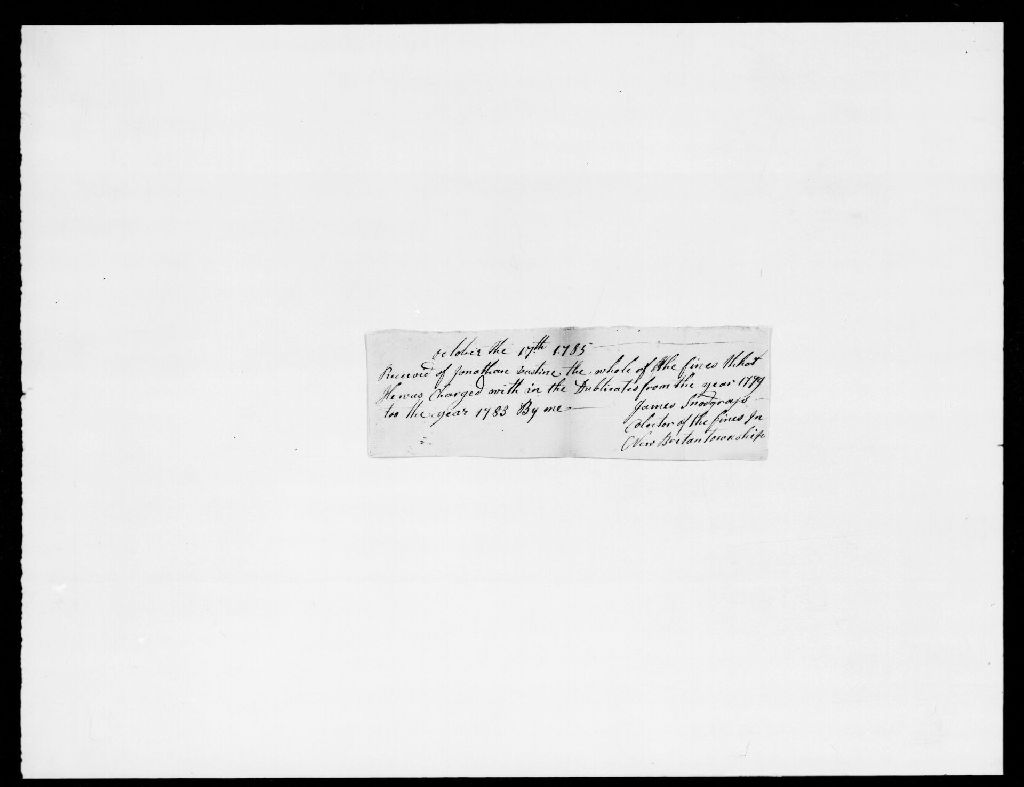 october the 17th 1785
Receievd of Jonathan the whole of the fines that
He was Charged with in the Dublicates from the year 1779
too the year 1783 By me
James Snodgrass
Colector of the fines In
New Britan township